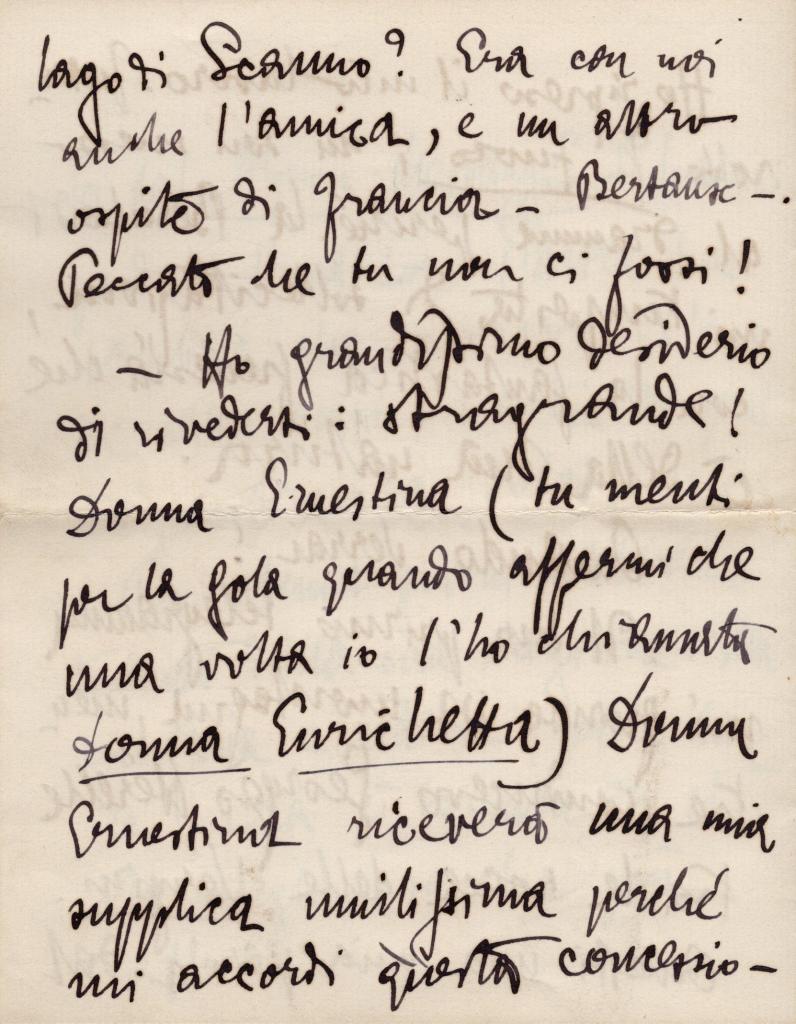 lago di Scanno? Era con noi
anche l'amica, e un altro
ospite di Francia – Bertaux –.
Peccato che tu non ci fossi!
– Ho grandissimo desiderio
di rivederti: stragrande!
Donna Ernestina (tu menti
per la gola quando affermi che
una volta io l'ho chiamata
donna Enrichetta) Donna
Ernestina riceverà una mia
supplica umilissima perché
mi accordi questa concessio-